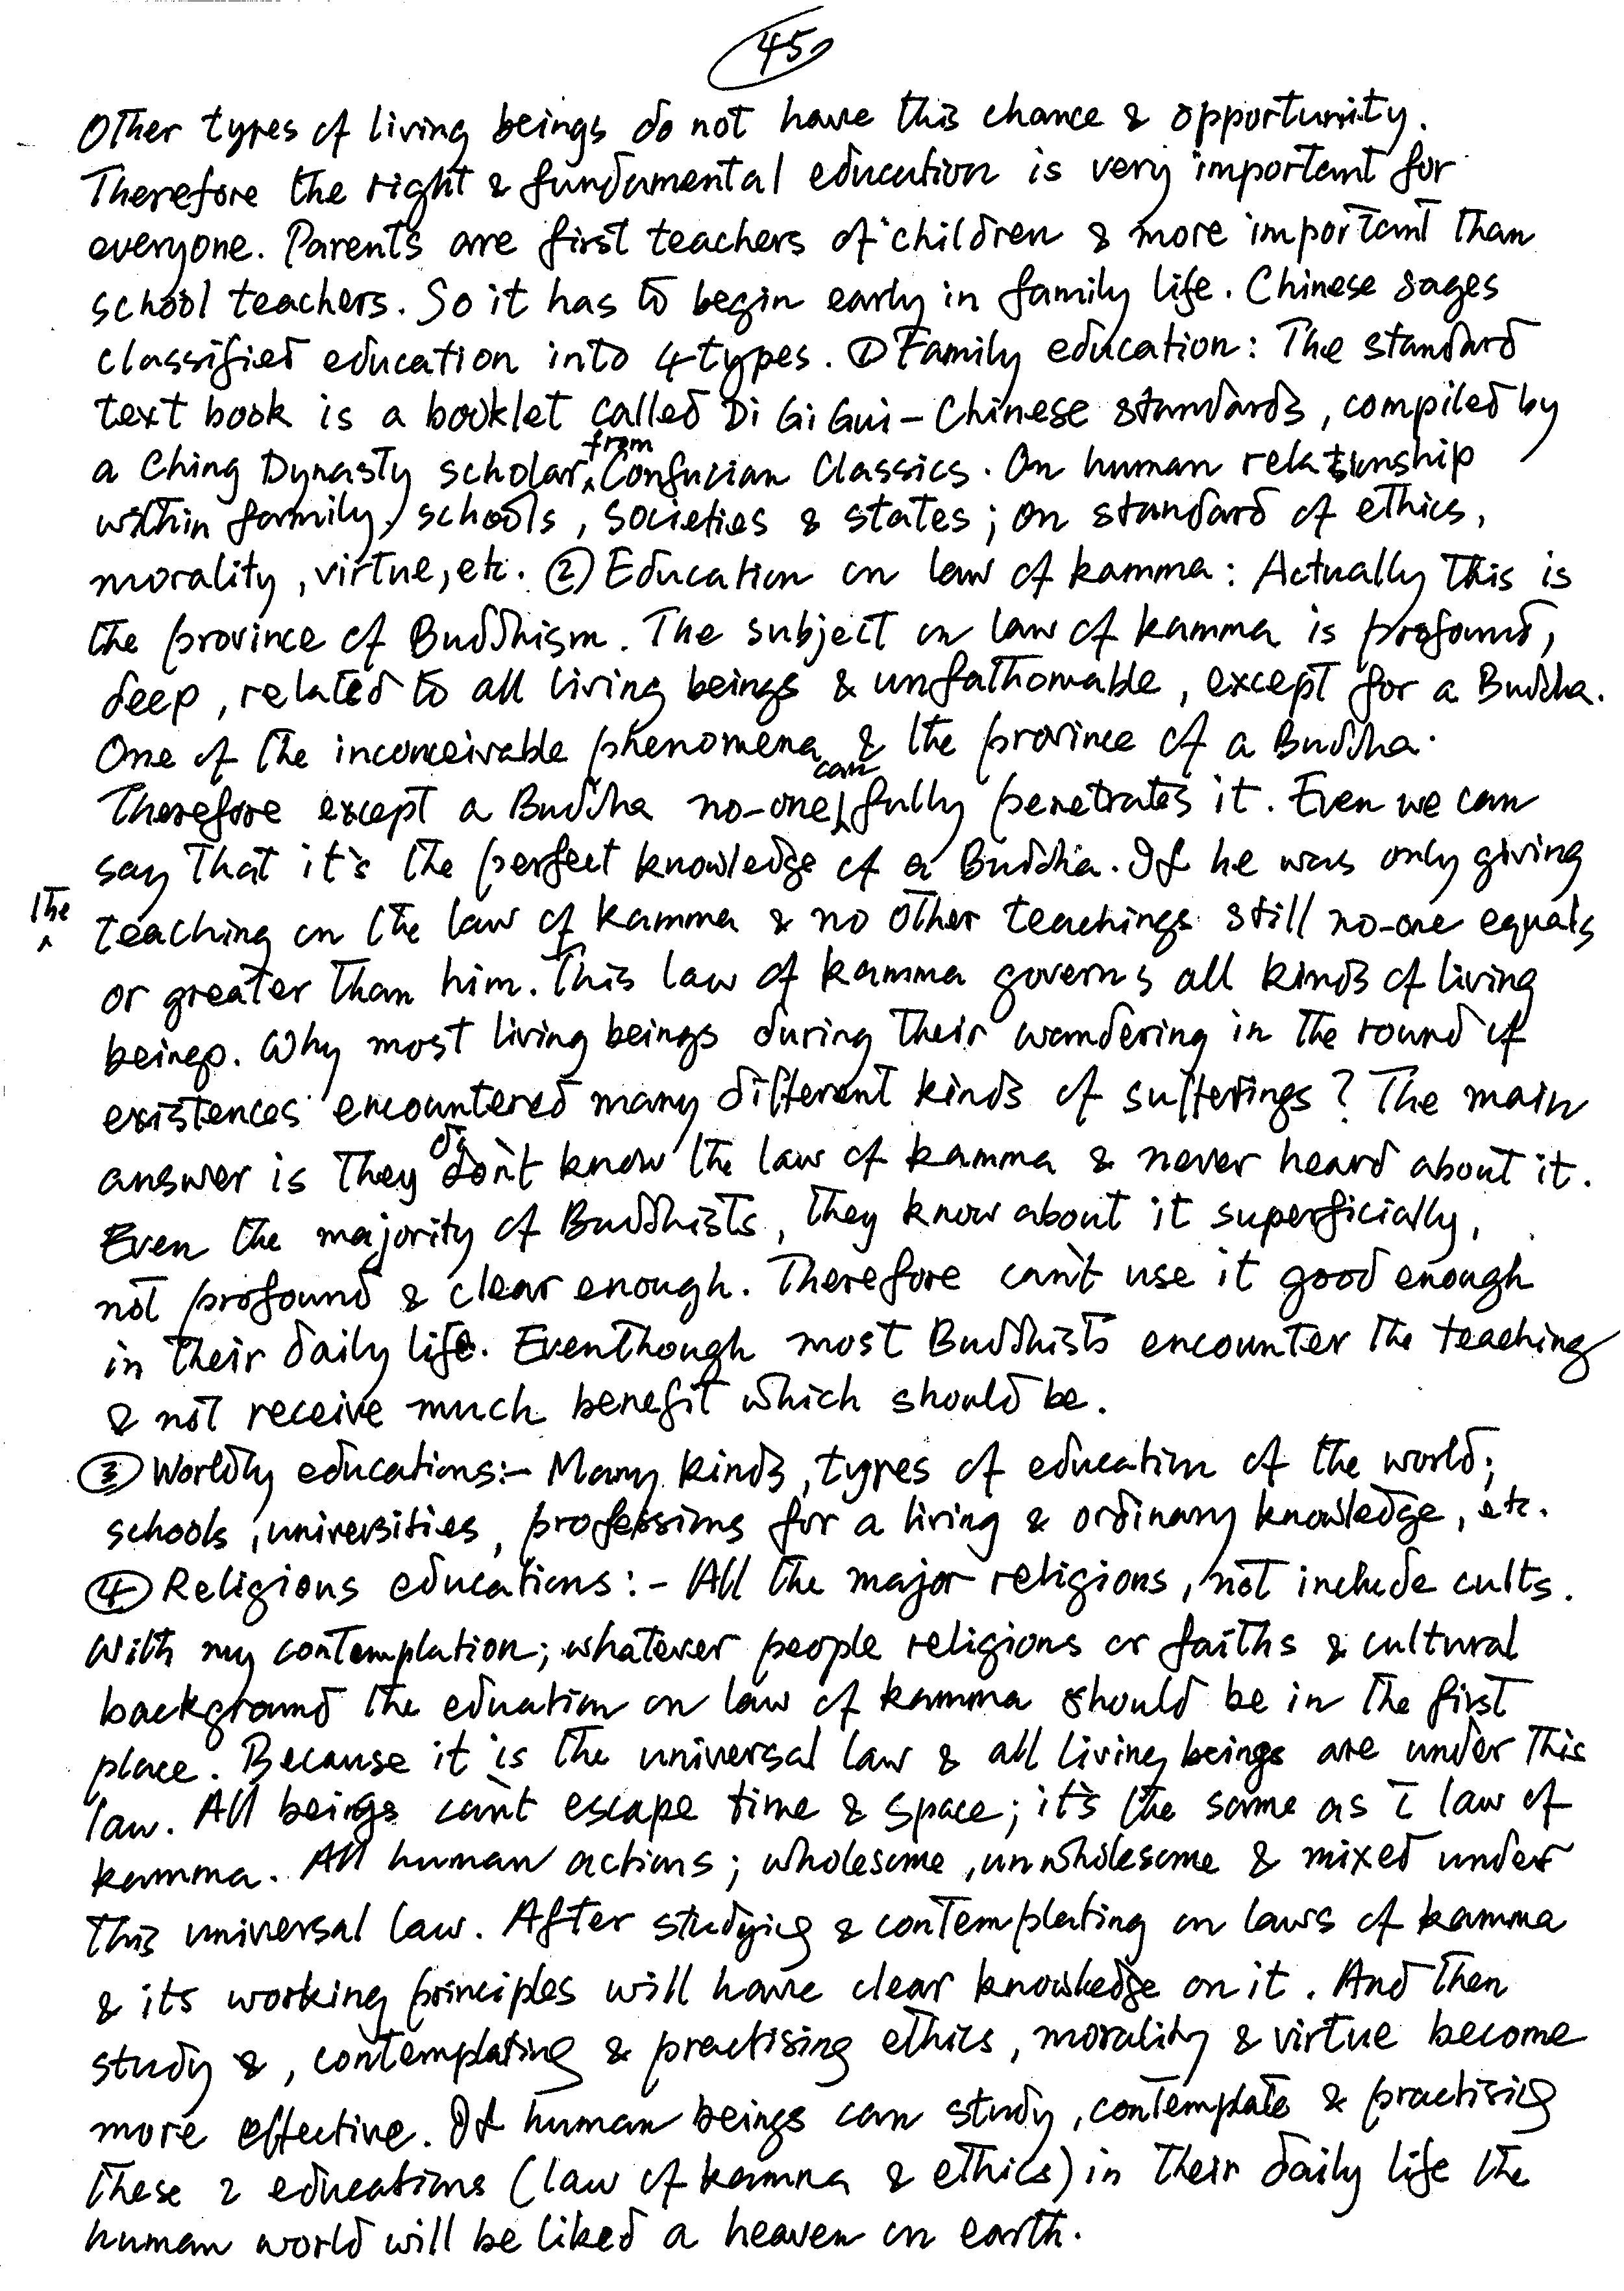 45
Other types of living beings do not have this chance & opportunity.
Therefore the right & fundamental education is very important for
everyone. Parents are first teachers of children & more important than
school teachers. So it has to begin early in family life. Chinese sages
classified education into 4 types. ① Family education: The standard
text book is a booklet called Di Gi Gui – Chinese standards, compiled by
a Ching Dynasty scholar, from Confucian Classics. On human relationship
within family, schools, societies & states; on standard of ethics,
morality, virtue, etc. ② Education on law of kamma: Actually this is
the province of Buddhism. The subject on law of kamma is profound,
deep, related to all living beings & unfathomable, except for a Buddha.
One of the inconceivable phenomena & the province of a Buddha.
Therefore except a Buddha no-one can fully penetrates it. Even we can
say that it's the perfect knowledge of a Buddha. If he was only giving
the teaching on the law of kamma & no other teachings still no-one equals
or greater than him. This law of kamma governs all kinds of living
beings. Why most living beings during their wandering in the round of
existences encountered many different kinds of sufferings? The main
answer is they don't know the law of kamma & never heard about it.
Even the majority of Buddhists, they know about it superficially,
not profound & clear enough. Therefore can't use it good enough
in their daily life. Eventhough most Buddhists encounter the teaching
& not receive much benefit which should be.
③ Worldly educations:– Many kinds, types of education of the world;
schools, universities, professions for a living & ordinary knowledge, etc.
④ Religious educations:– All the major religions, not include cults.
With my contemplation; whatever people religions or faiths & cultural
background the eduation on law of kamma should be in the first
place. Because it is the universal law & all living beings are under this
law. All beings can't escape time & space; it's the same as ī law of
kamma. All human actions; wholesome, unwholesome & mixed under
this universal law. After studying & contemplating on laws of kamma
& its working principles will have clear knowledge on it. And then
study &, contemplating & practising ethics, morality & virtue become
more effective. If human beings can study, contemplate & practising
these 2 educations (law of kamma & ethics) in their daily life the
human world will be liked a heaven on earth.